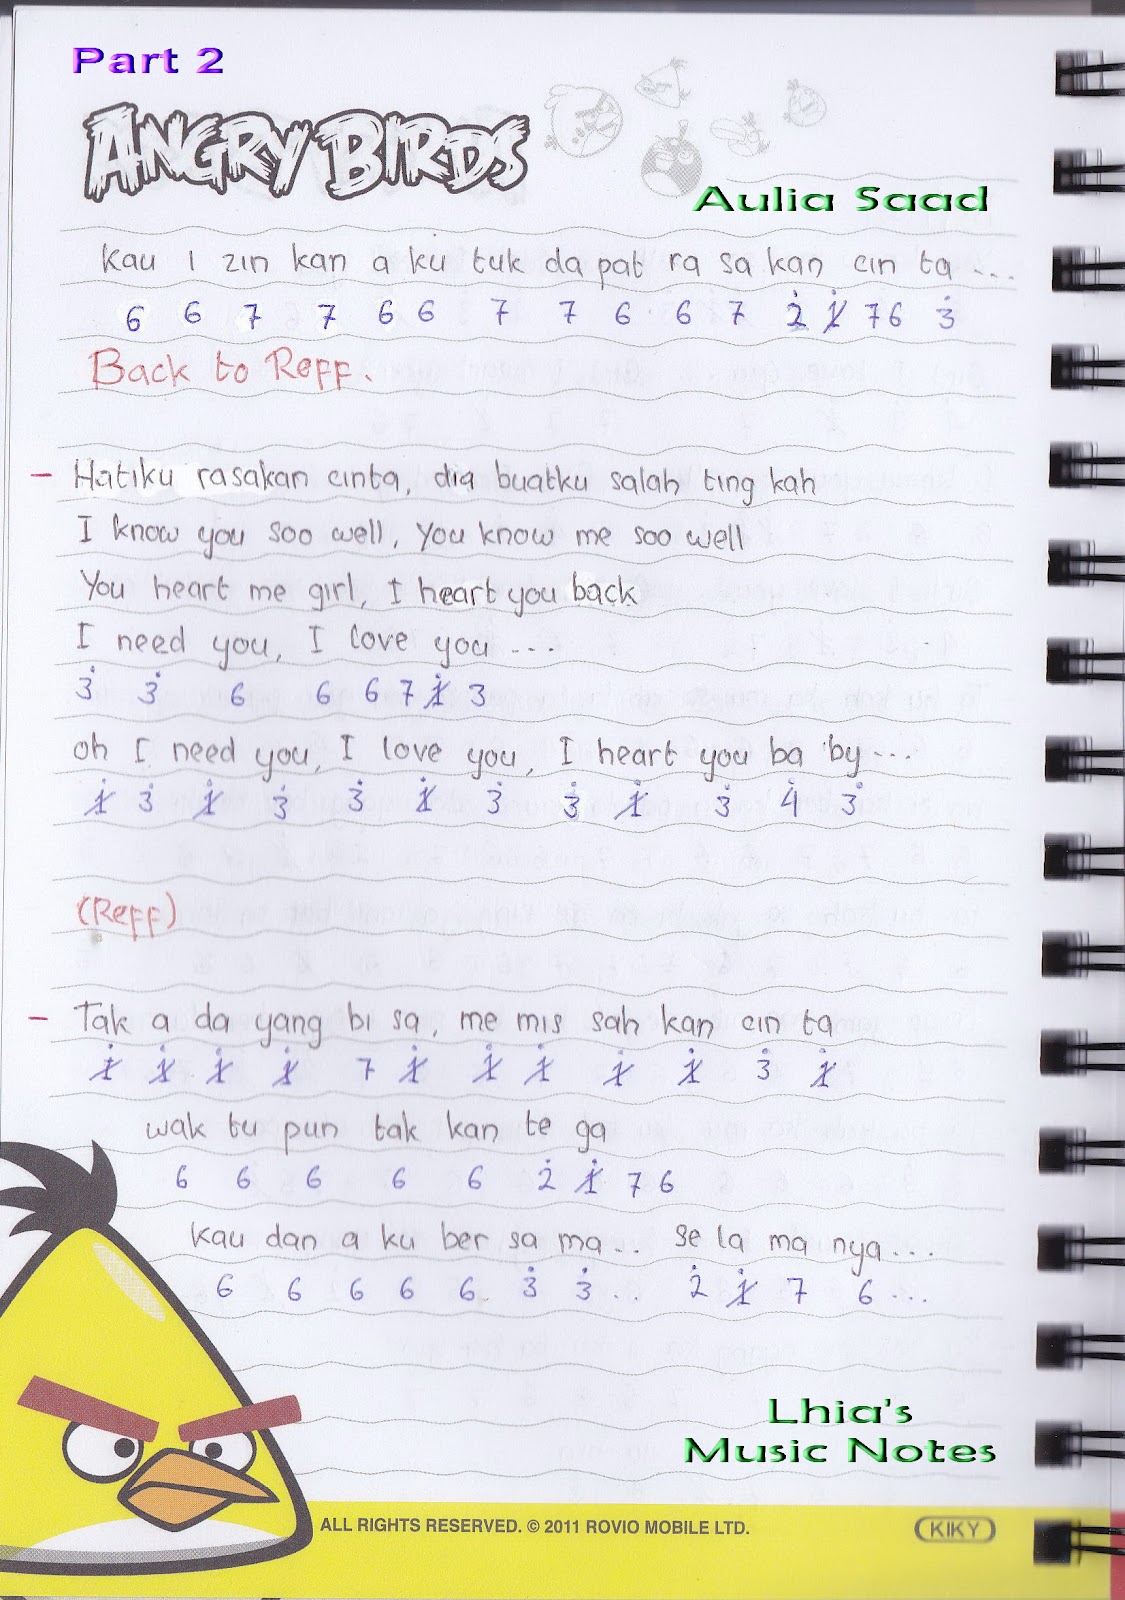 Part 2
ANGRY BIRDS
Aulia Saad
Kau i zin kan a ku tuk da pat ra sa kan cin ta ...
6 6 7 7 6 6 7 7 6 6 7 2̇ 1̇ 7 6 3̇
Back to Reff.
- Hatiku rasakan cinta, dia buatku salah ting kah
I know you soo well, you know me soo well
You heart me girl, I heart you back
I need you, I love you ...
3̇ 3̇ 6 6 6 7 1̇ 3
oh I need you, I love you, I heart you ba by ...
1̇ 3̇ 1̇ 3̇ 3̇ 1̇ 3̇ 3̇ 1̇ 3̇ 4̇ 3̇
(Reff)
- Tak a da yang bi sa, me mis sah kan cin ta
1̇ 1̇ 1̇ 1̇ 7 1̇ 1̇ 1̇ 1̇ 1̇ 3̇ 1̇
wak tu pun tak kan te ga
6 6 6 6 6 2̇ 1̇ 7 6
Kau dan a ku ber sa ma.. se la ma nya ...
6 6 6 6 6 3̇ 3̇ .. 2̇ 1̇ 7 6 ...
Lhia's
Music Notes
ALL RIGHTS RESERVED. © 2011 ROVIO MOBILE LTD.
KIKY